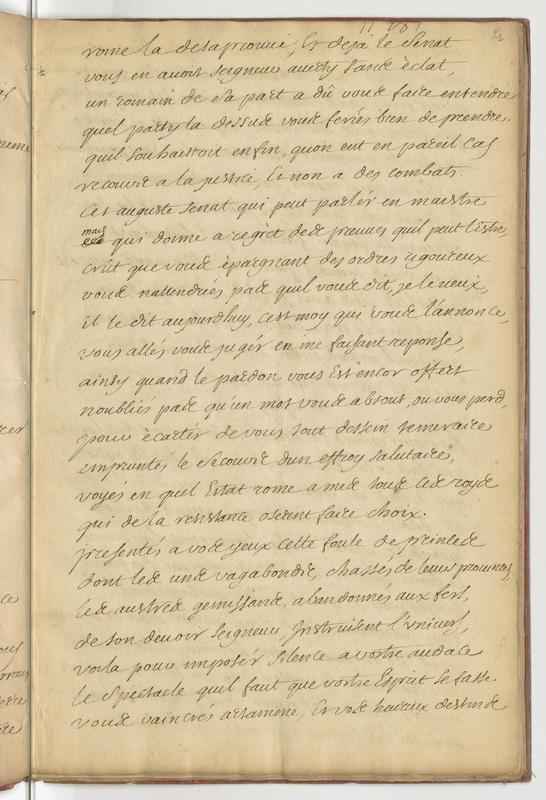 4
rome la desaprouué, Et deja le Senat
vous en auoit seigneur auerty sans éclat,
un romain de sa part a dû vous faire entendre
quel party la dessus vous feriés bien de prendre.
quil souhaittoit enfin, quon eut en pareil cas
recours a la justice, Et non a des combats.
Cet auguste Senat qui peut parlér en maistre
mais
qui donne a regrèt des preuues quil peut l'estre
crût que vous épargnant des ordres rigoureux
vous nattendriés pas quil vous dit, je le veux,
il le dit aujourdhuy, cest moy qui vous l'annonce,
vous allés vous jugér en me faisant reponse,
ainsy quand le pardon vous Est encor offert
noubliés pas qu'un mot vous absout, ou vous perd,
pour écartér de vous tout dessein temeraire
empruntés le secours dun effroy salutaire,
voyés en quel Estat rome a mis tous ces roys
qui de la resistance oserent faire choix.
presentés a vos yeux cette foule de princes
dont les uns vagabonds, chassés de leurs prouinces,
les autres gemissans, abandonnés aux fers,
de son deuoir seigneur Instruisent l'univers,
voila pour imposér silence a vostre audace
le spectacle quil faut que vostre Esprit se fasse
vous vaincrés artamene, Et vos heureux destins